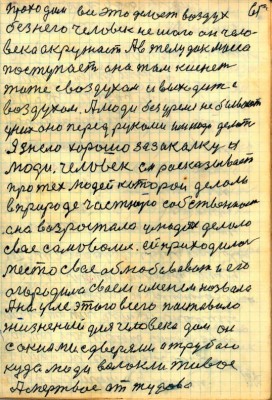 проходит все это делает воздух
без него человек не шаго он чело-
века окружает А в телу как масса
поступает она там кипнет
тоже с воздухом и выходит с
воздухом. А люди без уреи не бывают
у них оно перед руками им надо делать
Я знело хорошо за закалку и
люди. человек ся расказывает
про тех людей которой делали
в природе частную собственность
она возростала и людях делало
свае самоволие. ей приходилось
место свае облюбовават и его
огородила своем именем назвала
Ана у еле этого всего поставило
жизненый для человека дом он
с окнами с дверями с трубаю
куда люди волокли живое
А мертвое от тудова